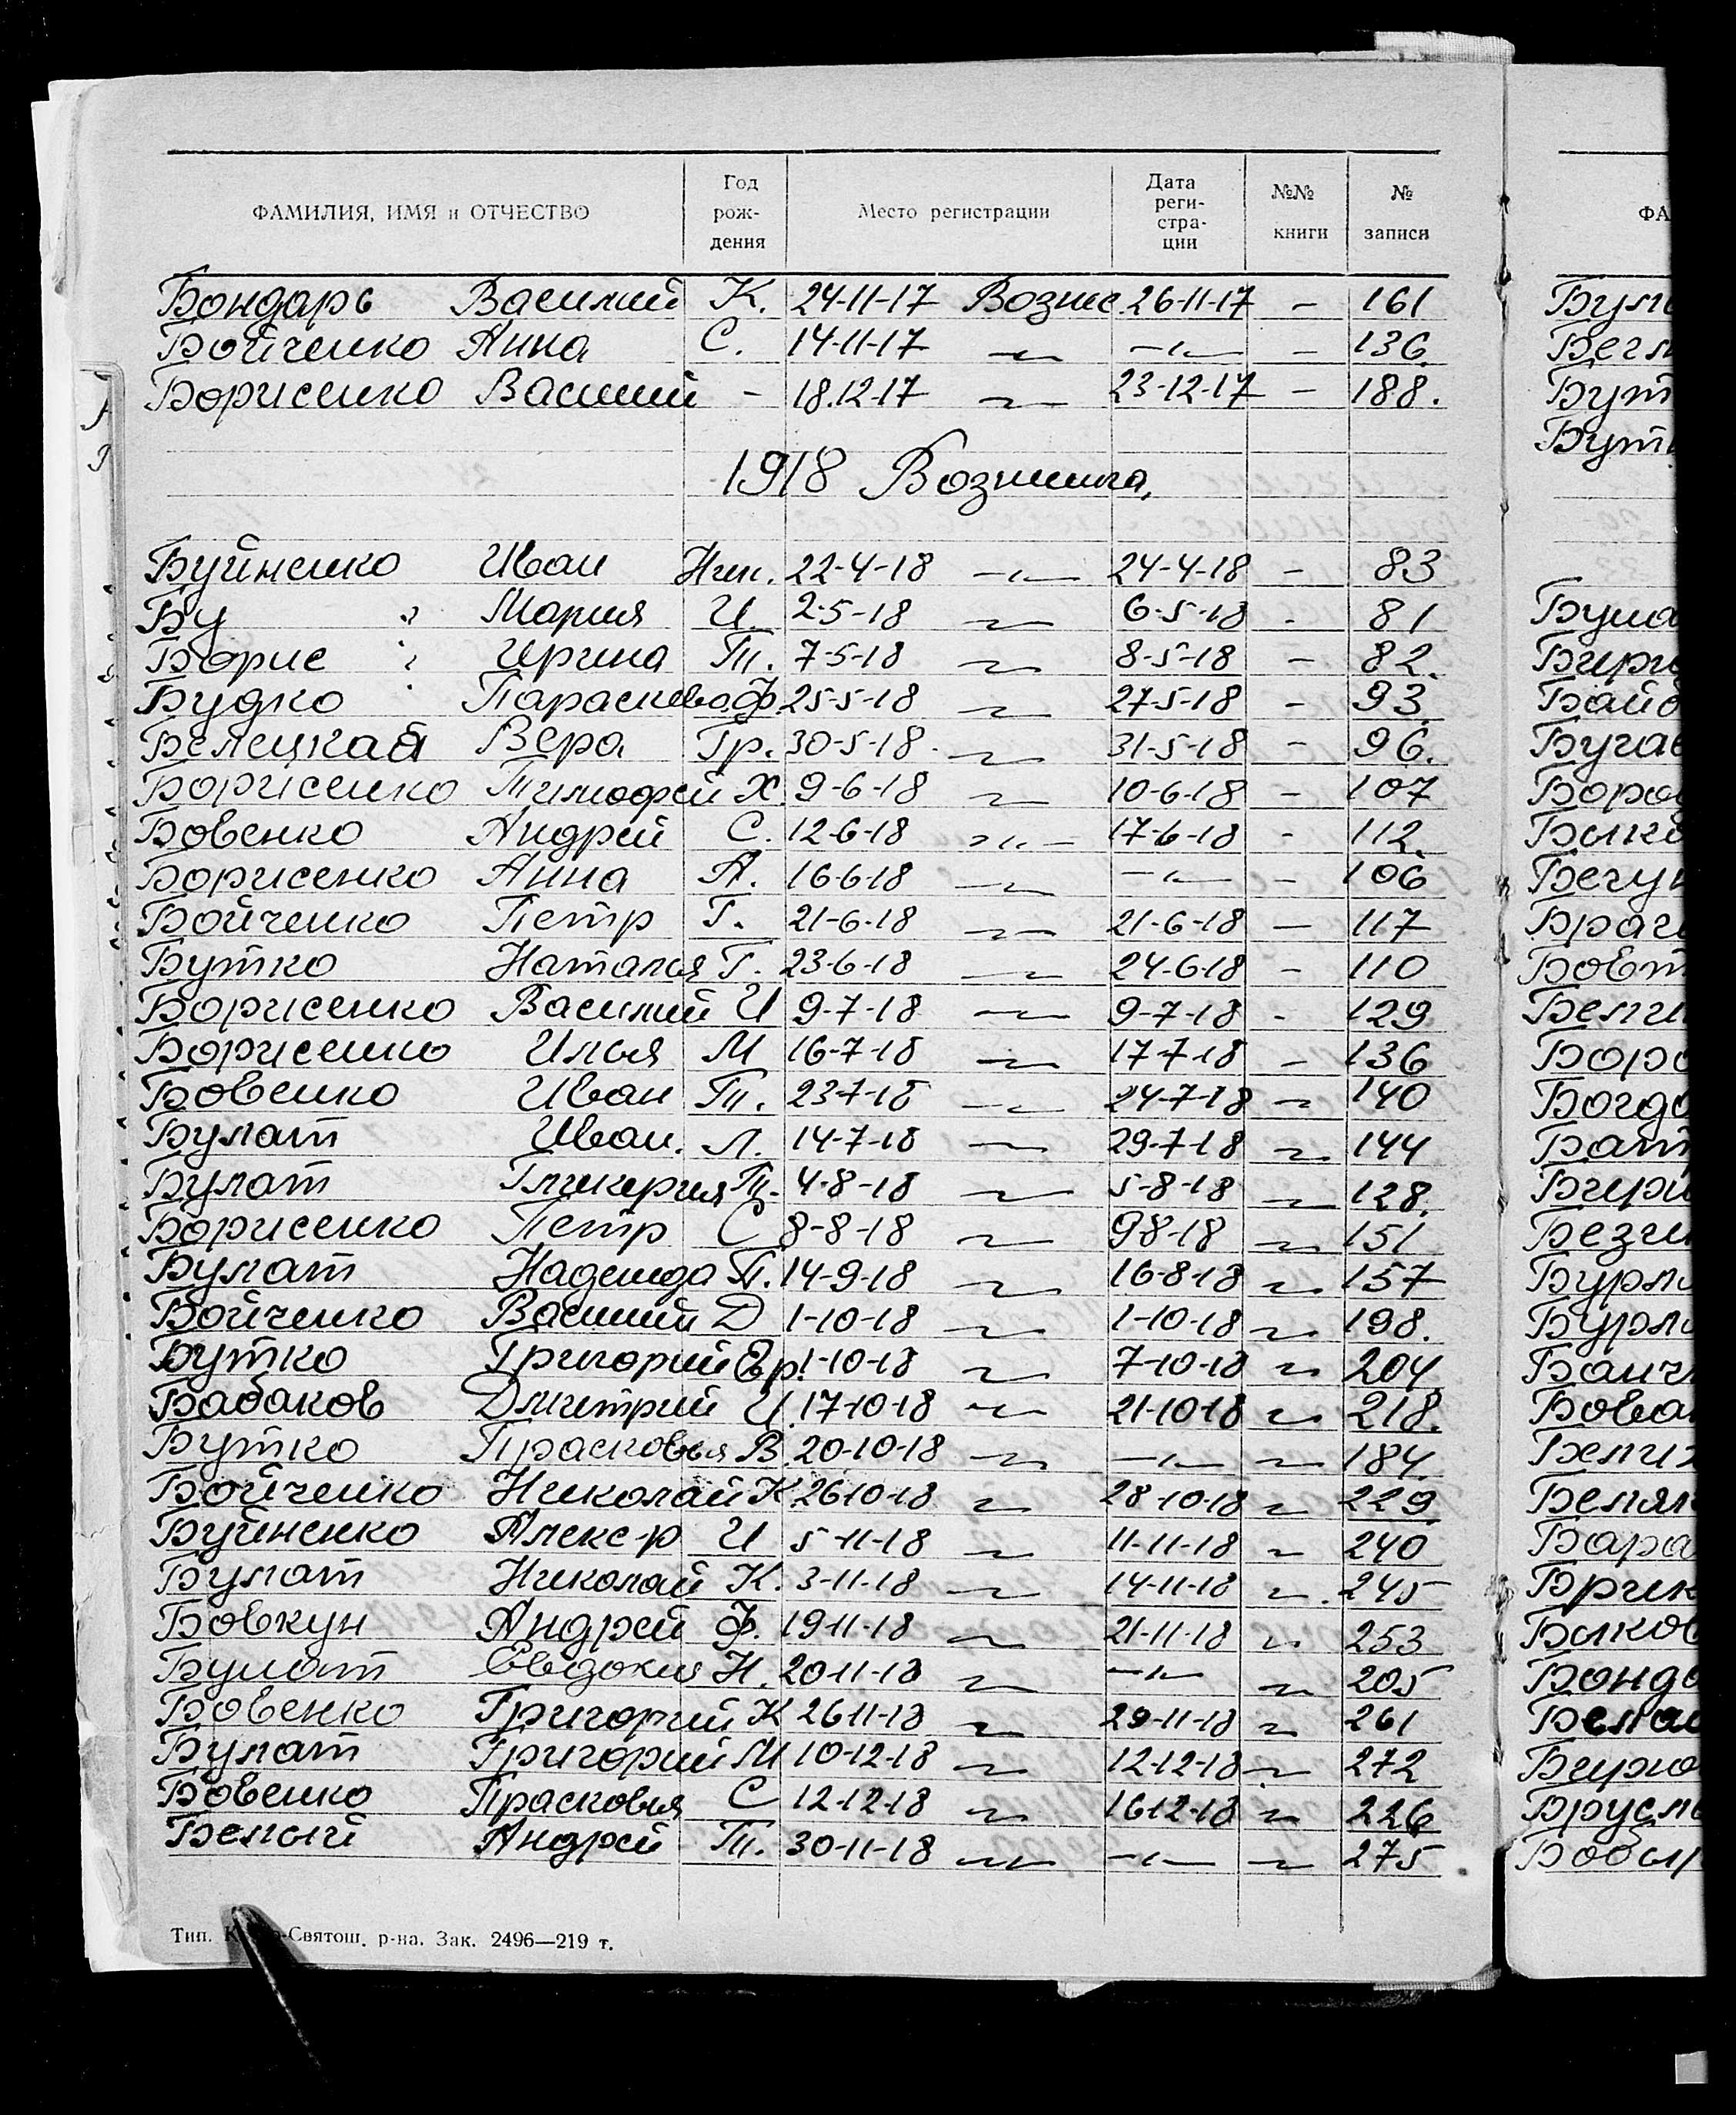 ФАМИЛИЯ, ИМЯ и ОТЧЕСТВО Год рождения Место регистрации Дата регистрации №№ книги № записи ФА
Бондарь Василий К. 24-11-17 Вознес. 26-11-17 - 161
Бойченко Анна С. 14-11-17 -"- -"- - 136.
Борисенко Василий - 18.12-17 -"- 23-12-17 - 188.
1918
Буйненко Иван Ник. 22-4-18 -"- 24-4-18 - 83
Бу ? Мария И. 2-5-18 -"- 6-5-18 - 81
Борис ? Ирина Т. 7-5-18 -"- 8-5-18 - 82.
Будко Параскева Ф. 25-5-18 -"- 27-5-18 - 93.
Белецкая Вера Гр. 30-5-18 -"- 31-5-18 - 96.
Борисенко Тимофей Х. 9-6-18 -"- 10-6-18 - 107
Бовенко Андрей С. 12-6-18 -"- 17-6-18 - 112.
Борисенко Анна А. 16-6-18 -"- -"- - 106
Бойченко Петр Г. 21-6-18 -"- 21-6-18 - 117
Бутко Наталья Г. 23-6-18 -"- 24-6-18 - 110
Борисенко Василий И 9-7-18 -"- 9-7-18 - 129
Борисенко Илья М 16-7-18 -"- 17-7-18 - 136
Бовенко Иван Т. 23-7-18 -"- 24-7-18 -"- 140
Булат Иван. Л. 14-7-18 -"- 29-7-18 -"- 144
Булат Гликерия Т. 4-8-18 -"- 5-8-18 -"- 128.
Борисенко Петр С 8-8-18 -"- 9-8-18 -"- 151
Булат Надежда П. 14-9-18 -"- 16-8-18 -"- 157
Бойченко Василий Д 1-10-18 -"- 1-10-18 -"- 198.
Бутко Григорий Ер. 1-10-18 -"- 7-10-18 -"- 204
Бабаков Дмитрий И. 17-10-18 -"- 21-10-18 -"- 218.
Бутко Прасковья В. 20-10-18 -"- -"- -"- 184.
Бойченко Николай К 26-10-18 -"- 28-10-18 -"- 229.
Буйненко Алекс-р И 5-11-18 -"- 11-11-18 -"- 240
Булат Николай К. 3-11-18 -"- 14-11-18 -"- 245
Бовкун Андрей Ф. 19-11-18 -"- 21-11-18 -"- 253
Булат Евдокия Н. 20-11-18 -"- -"- -"- 205
Бовенко Григорий К 26-11-18 -"- 29-11-18 -"- 261
Булат Григорий М 10-12-18 -"- 12-12-18 -"- 272
Бовенко Прасковья С 12-12-18 -"- 16-12-18 -"- 226
Белый Андрей Т. 30-11-18 -"- -"- -"- 275
Тип. -Святош. р-на. Зак. 2496—219 т.